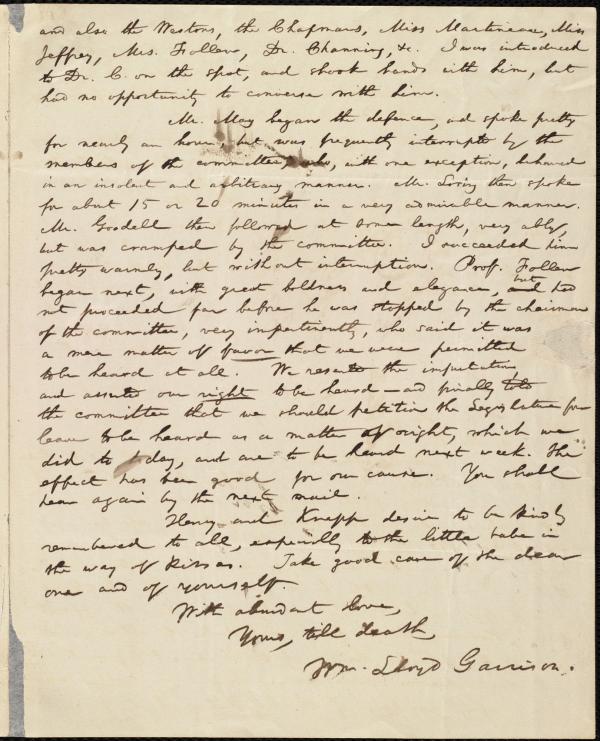 and also the Westons, the Chapmans, Miss Martineau, Miss
Jeffrey, Mrs. Follen, Dr. Channing, &c. I was introduced
to Dr. C. on the spot, and shook hands with him, but
had no opportunity to converse with him.
Mr. May began the defence, and spoke pretty
for nearly an hour, but was frequently interrupted by the
members of the committee, who, with one exception, behaved
in an insolent and arbitrary manner. Mr. Loring then spoke
for about 15 or 20 minutes in a very admirable manner.
Mr. Goodell then followed at some length, very ably,
but was cramped by the committee. I succeeded him
pretty warmly, but without interruption. Prof. Follen
began next, with great boldness and elegance, but had
not proceeded far before he was stopped by the chairman
of the committee, very impertinently, who said it was
a mere matter of favor that we were permitted
to be heard at all. We resented the imputation,
and asserted our right to be heard—and finally told
the committee that we should petition the Legislature for
leave to be heard as a matter of right, which we
did to-day, and are to be heard next week. The
effect has been good for our cause. You shall
hear again by the next mail.
Henry and Knapp desire to be kindly
remembered to all, especially to the little babe in
the way of kisses. Take good care of the dear
one and of yourself.
With abundant love,
Yours, till death,
Wm. Lloyd Garrison.